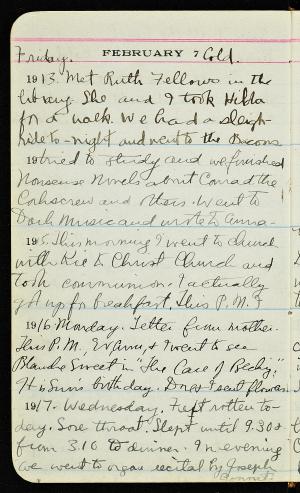 Friday. FEBRUARY 7 Cold.
1913. Met Ruth Fellows in the
library. She and I took Hilda
for a walk. We had a sleigh-
ride to-night and went to the Bacons
19 tried to study and we finished
Nonsense Novels about Conrad the
Corkscrew and others. Went to
Music and wrote to Anna-
191 This morning I went to church
with Kie to Christ Church and
took communion. I actually
got up for breakfast. This P.M. I
1916 Monday. Letter from mother.
This P.M., I went to see
Blanche Sweet in "The Case of Becky."
birthday. I sent flowers
1917. Wednesday. Felt rotten to-
day. Sore throat. Slept until 9.30 &
from 3.10 to dinner. In evening
we went to organ recital by Joseph
Bonnet